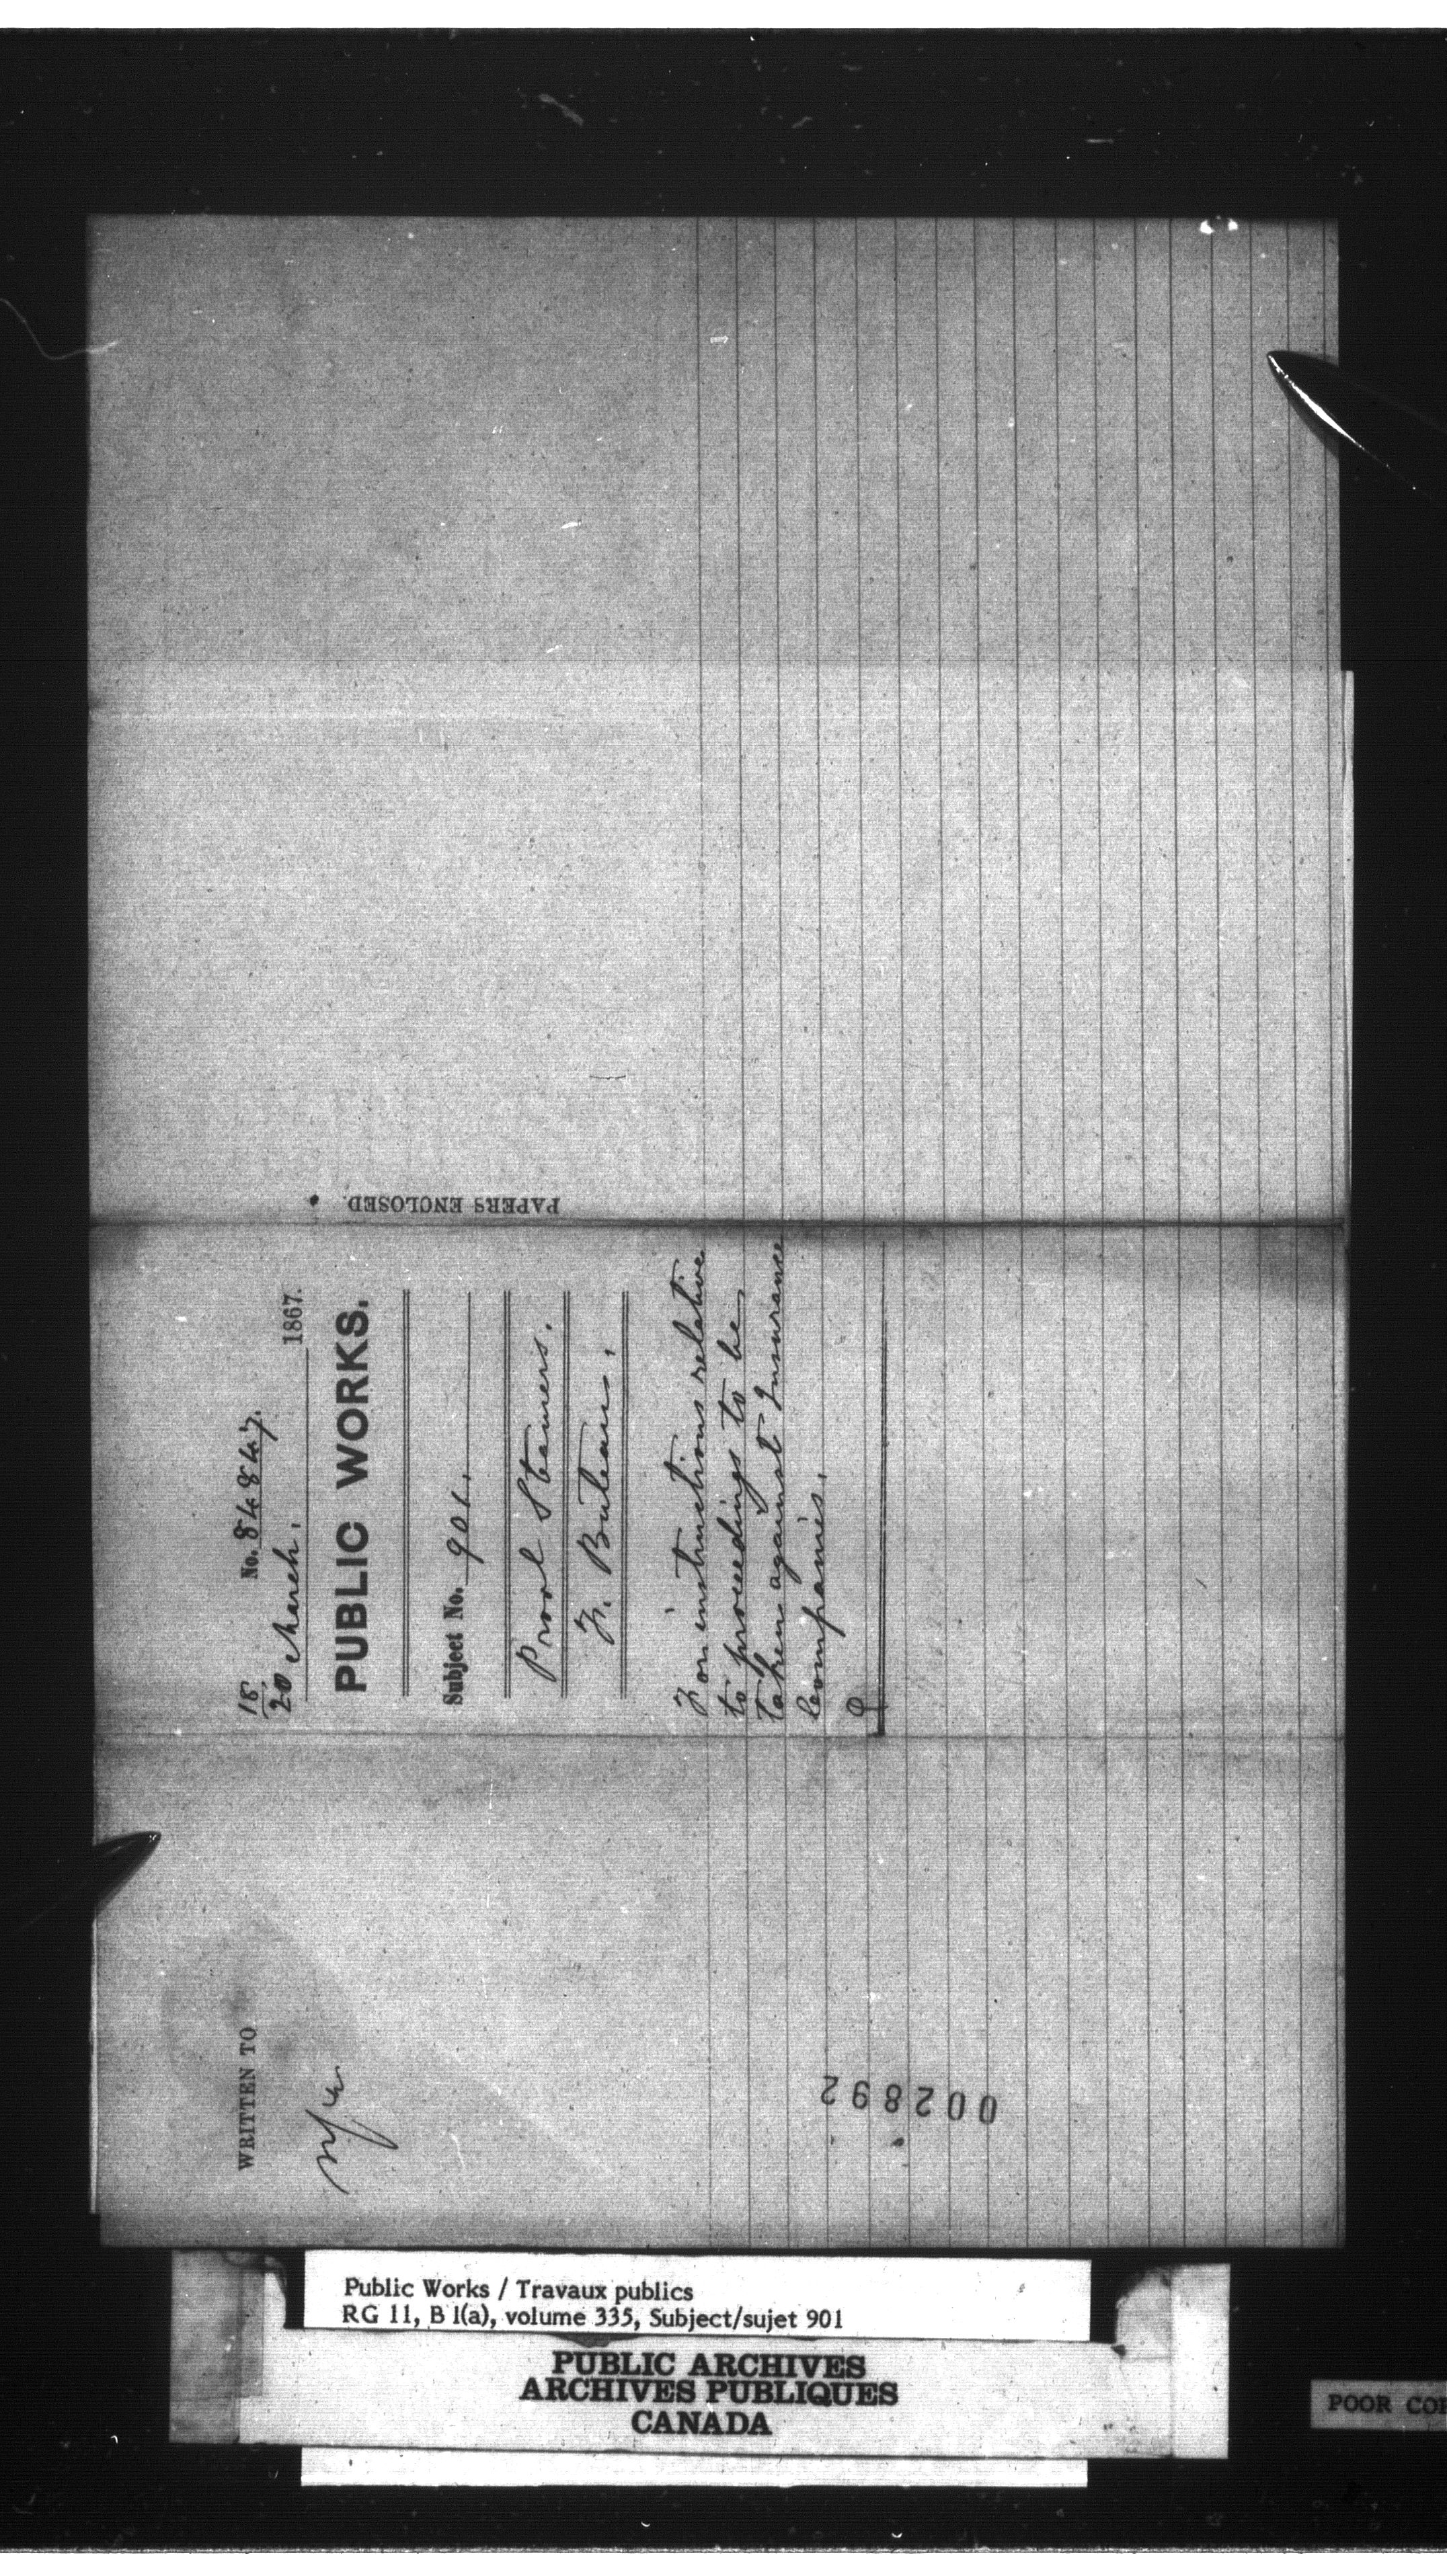 No. 84847.
18/20 March. 1867.
PUBLIC WORKS.
Subject No. 901.
Provl Steamers.
F. Buteau.
For instructions relative
to proceedings to be
taken against Insurance
Companies.
PAPERS ENCLOSED.
WRITTEN TO
002892
Public Works / Travaux publics
RG 11, B 1(a), volume 335, Subject/sujet 901
PUBLIC ARCHIVES
ARCHIVES PUBLIQUES
CANADA
POOR COP